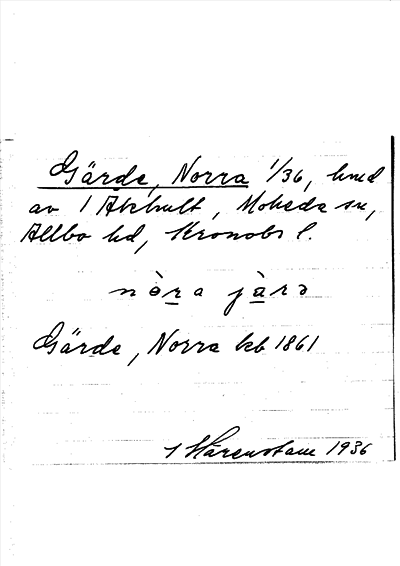 Gärde, Norra 1/36, hmd
av 1 Akhult, Moheda sn,
Allbo hd, Kronobs l.
nòra jàrə
Gärde, Norra kb 1861
Härenstam 1936